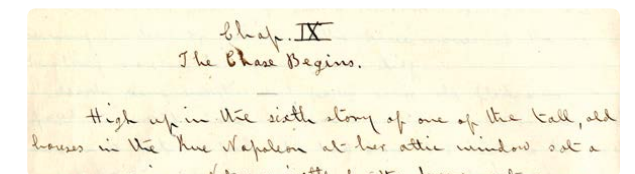 Chap. IX
The Chase Begins.
High up in the sixth story of one of the tall, old
houses in the Rue Napoleon at her attic window sat a